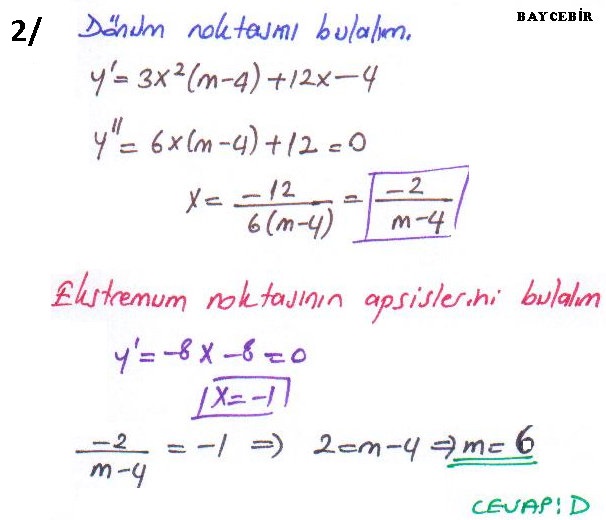 BAYCEBİR
2/ Dönüm noktasını bulalım.
y' = 3x²(m-4) + 12x - 4
y'' = 6x(m-4) + 12 = 0
x = -12/6(m-4) = -2/m-4
Ekstremum noktasının apsislerini bulalım
y' = -8x - 8 = 0
x = -1
-2/m-4 = -1 ⇒ 2 = m-4 ⇒ m = 6
CEVAP: D